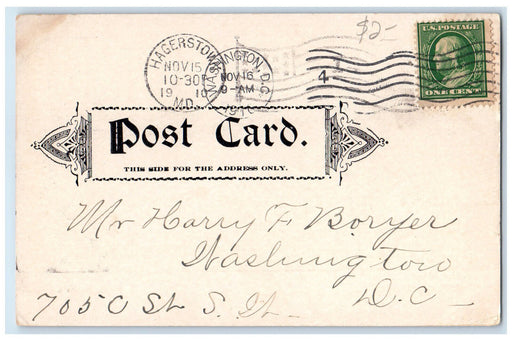 $2-
HAGERSTOWN
NOV 15
10-30
19 10
MD.
WASHINGTON, D.C.
NOV 16
9-AM
1910
4
U.S. POSTAGE
ONE CENT
Post Card.
THIS SIDE FOR THE ADDRESS ONLY.
Mr Harry F Boryer
Washington
D.C-
705 C St S.